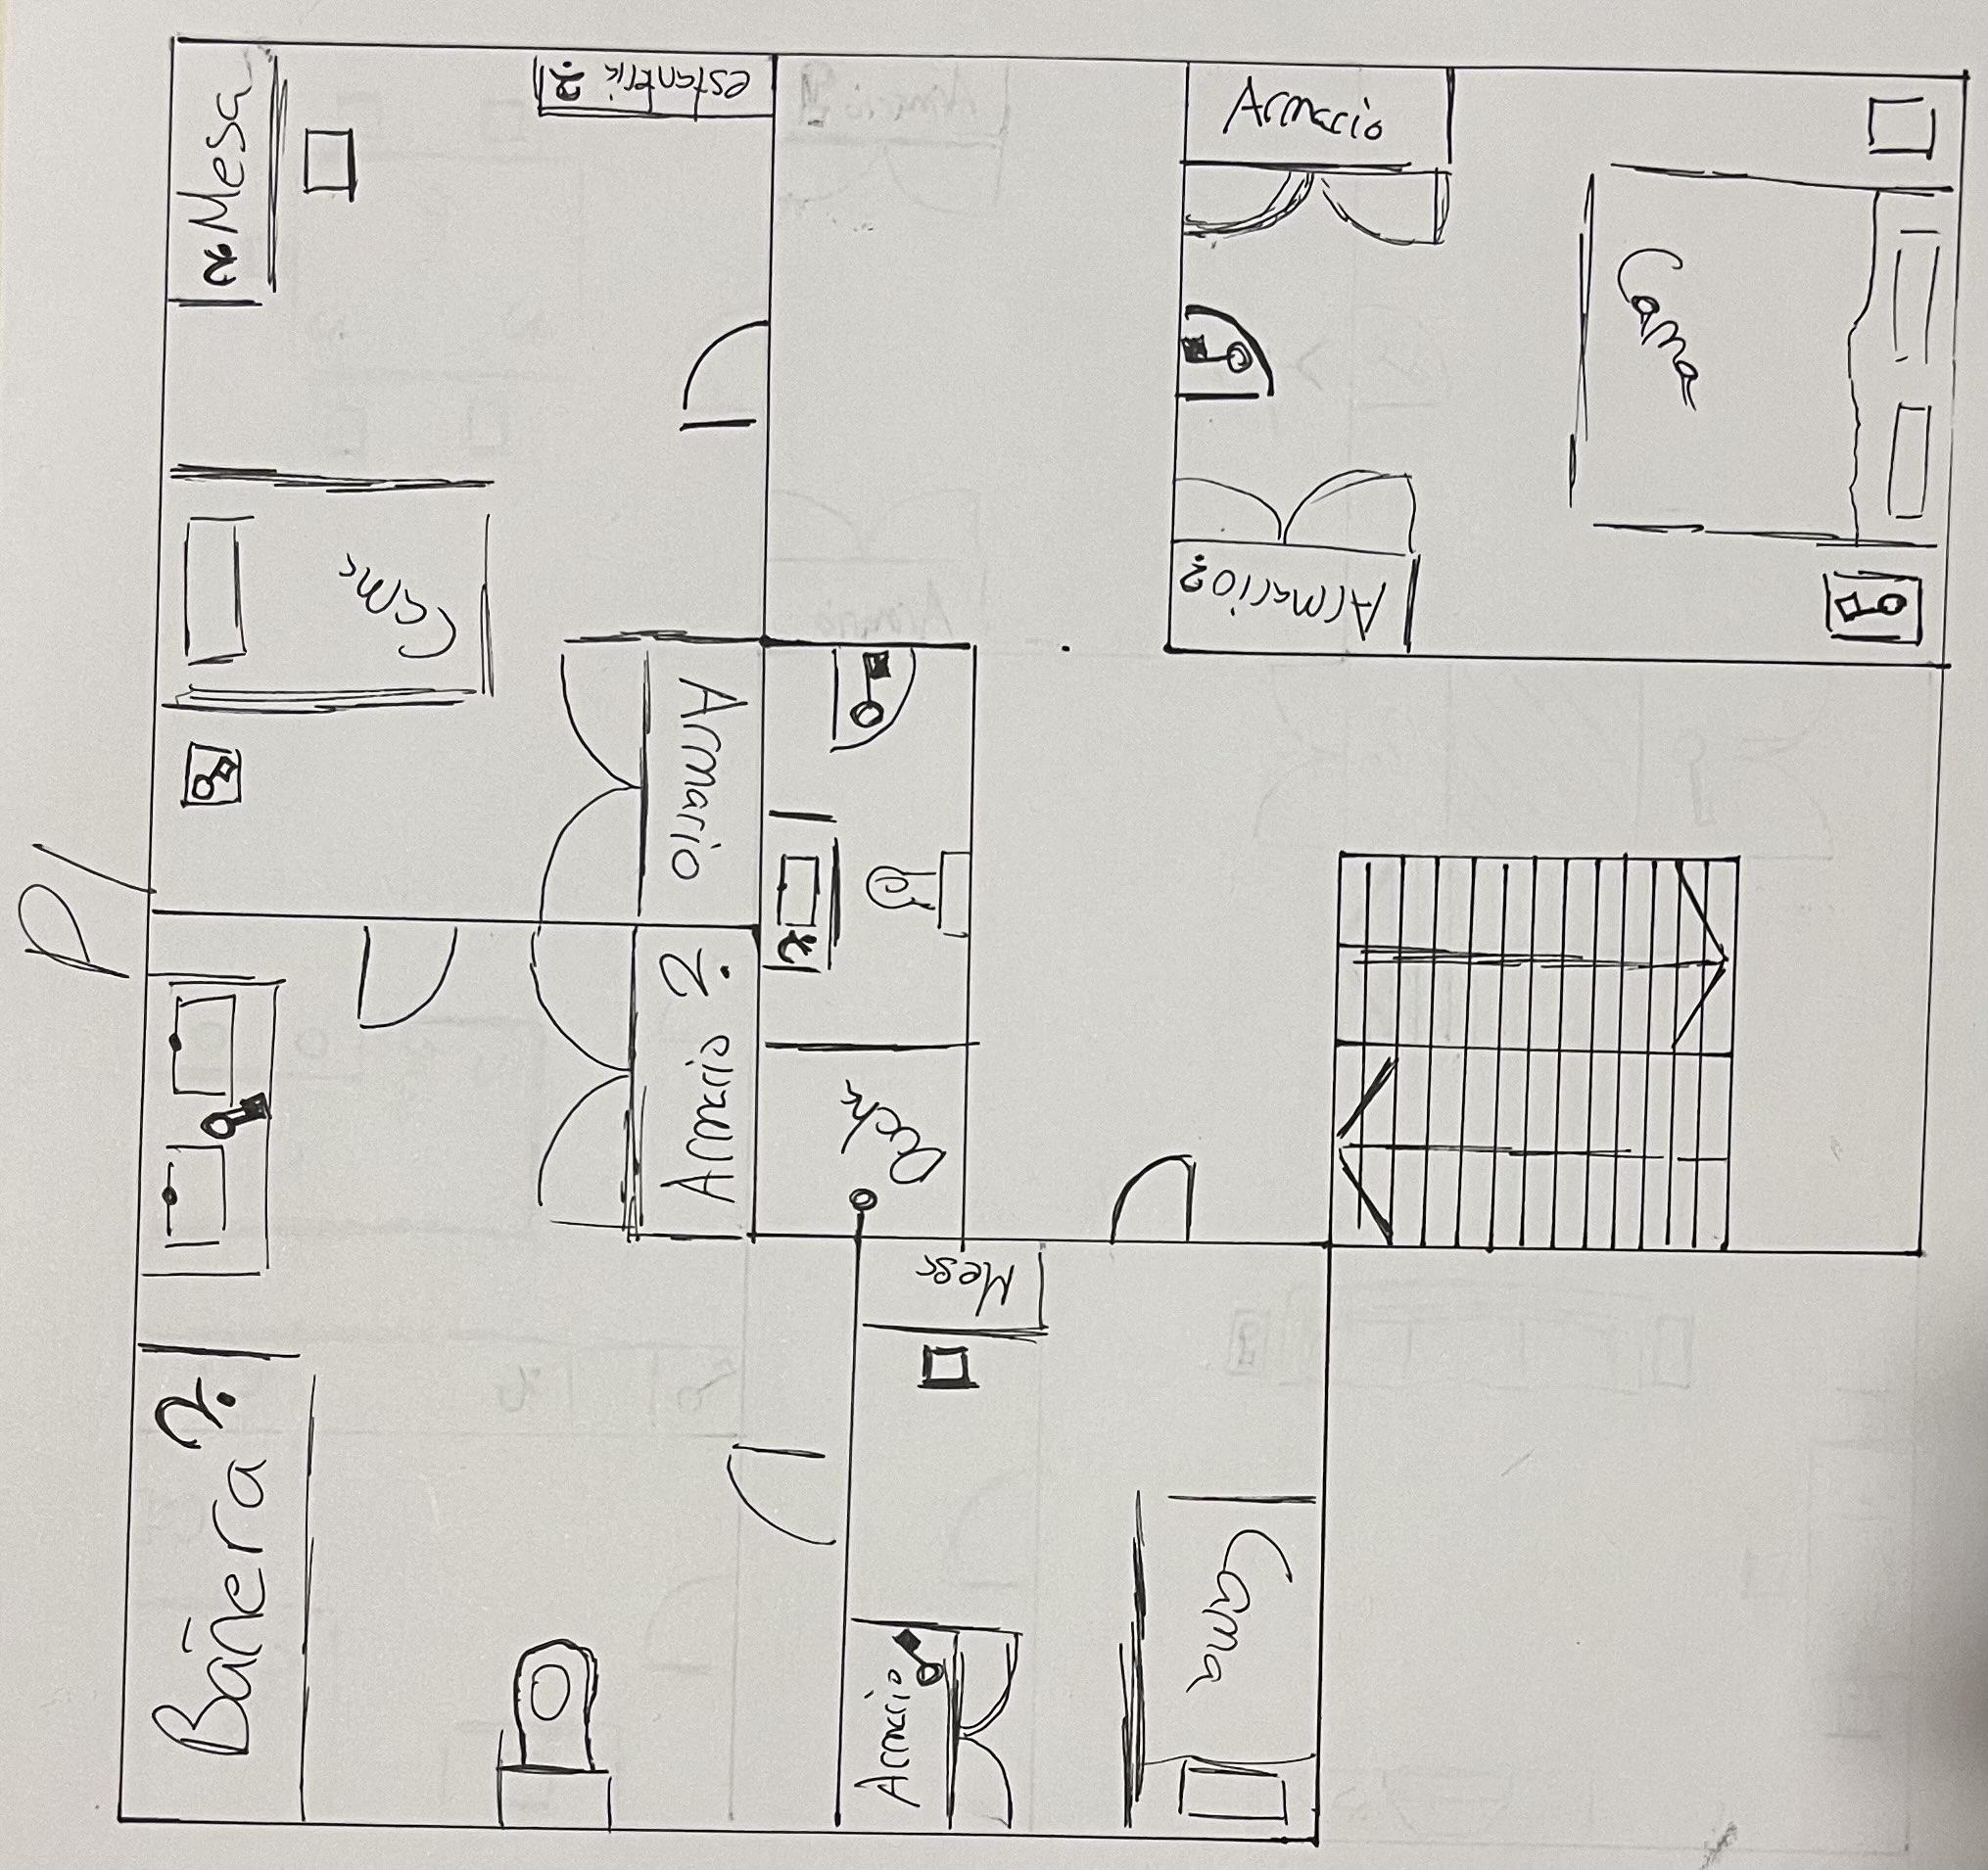 Mesa
estanteria ?
Armario
Cama
Cama
Armario
Armario?
P1
Armario ?
Ducha
Mesa
Bañera ?
Armario
Cama